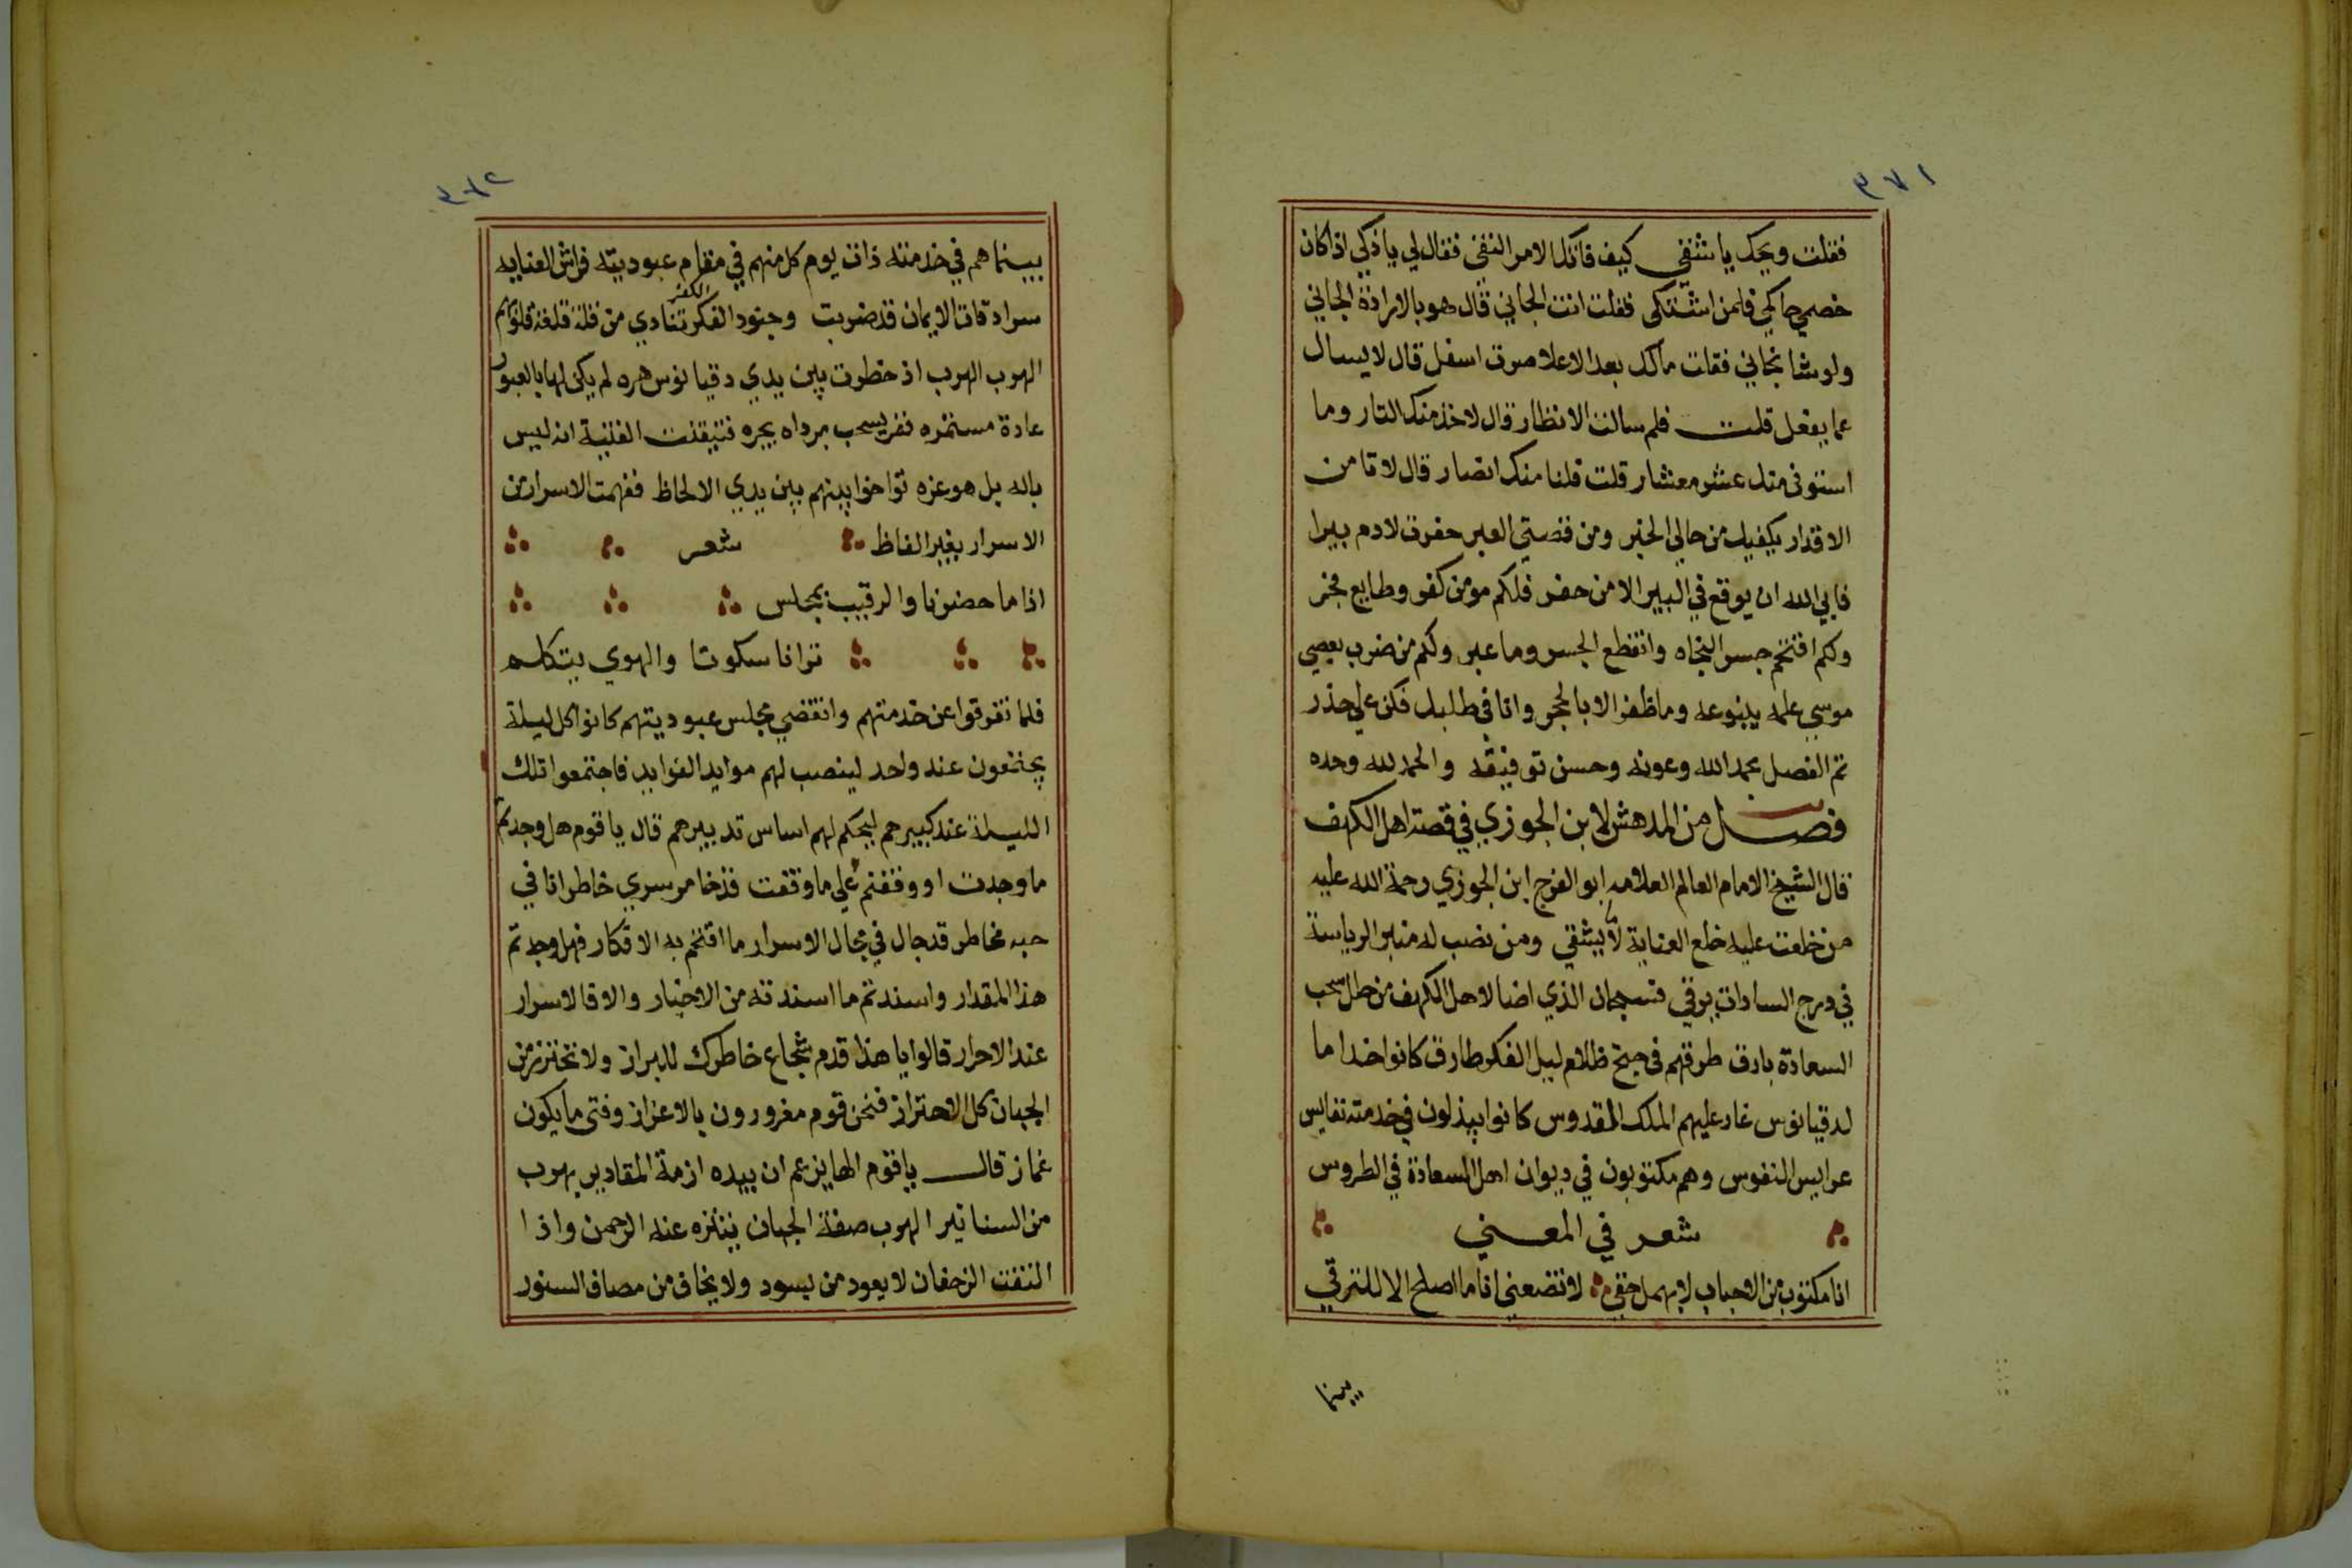 ٣٧١
فقلت ويحك يا شقي كيف فاتك الامر النفي فقال لي يا ذكي اذا كان
خصمي حاكمي فلمن اشتكي فقلت انت الجاني قال هو بالارادة الجاني
ولو شا نجاني فقلت مالك بعد الاعلا صرت اسفل قال لا يسال
عما يفعل قلت فلم سالت الانظار قال لاخذ منك التار وما
استوفي منك عشر معشار قلت فلنا منك انصار قال لا قامن
الاقدار يكفيك من حالي الخبر ومن قصتي العبر حفرت لادم بيرا
فابي الله ان يوقع في البير الا من حفر فلكم مومن كفر وطايع فجر
وكم اقتحم جسر النجاه وانقطع الجسر وما عبر وكم من ضرب بعصي
موسي علمه ينبوعه وما ظفر الا بالحجر وانا في طلبك فكن علي حذر
تم الفصل بحمد الله وعونه وحسن توفيقه والحمد لله وحده
فصل من المدهش لابن الجوزي في قصة اهل الكهف
قال الشيخ الامام العالم العلامه ابو الفرج ابن الجوزي رحمة الله عليه
من خلعت عليه خلع العناية لا يشقي ومن نصب له منبر الرياسة
في درج السادات يرقي فسبحان الذي اضا لاهل الكهف من خلل سحب
السعادة بارق طرقهم في جنح ظلام ليل الفكر طارق كانوا خداما
لدقيانوس غار عليهم الملك المقدوس كانوا يبذلون في خدمته نفايس
عرايس النفوس وهم مكتوبون في ديوان اهل السعادة في الطروس
شعر في المعني
انا مكتوب من الاحباب لا يهمل حقي لا تضعني انا ما اصلح الا للترقي
بينما
٣٧٢
بينما هم في خدمته ذات يوم كل منهم في مقام عبوديته فراش العنايه
سرادقات الايمان قد ضربت وجنود الفكر الكفر تنادي من قلة قلعة قلوبهم
الهرب الهرب اذ خطرت بين يدي دقيانوس هره لم يكن لها بالعبور
عادة مستمره ففر يسحب برداه يجره فتيقنت الفتية انه ليس
باله بل هو غره تواخوا بينهم بين يدي الالحاظ ففهمت الاسرار من
الاسرار بغير الفاظ شعر
اذا ما حضرنا والرقيب بمجلس
ترانا سكوتا والهوي يتكلم
فلما تفرقوا عن خدمتهم وانقضي مجلس عبوديتهم كانوا كل ليلة
يجتمعون عند واحد لينصب لهم موايد الفوايد فاجتمعوا تلك
الليلة عند كبيرهم ليحكم لهم اساس تدبيرهم قال يا قوم هل وجدتم
ما وجدت او وقفتم علي ما وقفت قد خامر سري خاطر انا في
حبه مخاطر قد جال في مجال الاسرار ما اقتحم به الافكار فهل وجدتم
هذا المقدار واسندتم ما اسندته من الاخبار والا فالاسرار
عند الاحرار قالوا يا هذا قدم شجاع خاطرك للبراز ولا تحترز من
الجبان كل الاحتراز فنحن قوم مغرورون بالاعزاز وفتي ما يكون
غماز قال يا قوم الها يزعم ان بيده ازمة المقادير يهرب
من السنانير الهرب صفة الجبان يتنزه عنه الرحمن واذا
التفت الزحفان لا يعود من يسود ولا يخاف من مصاف السنور